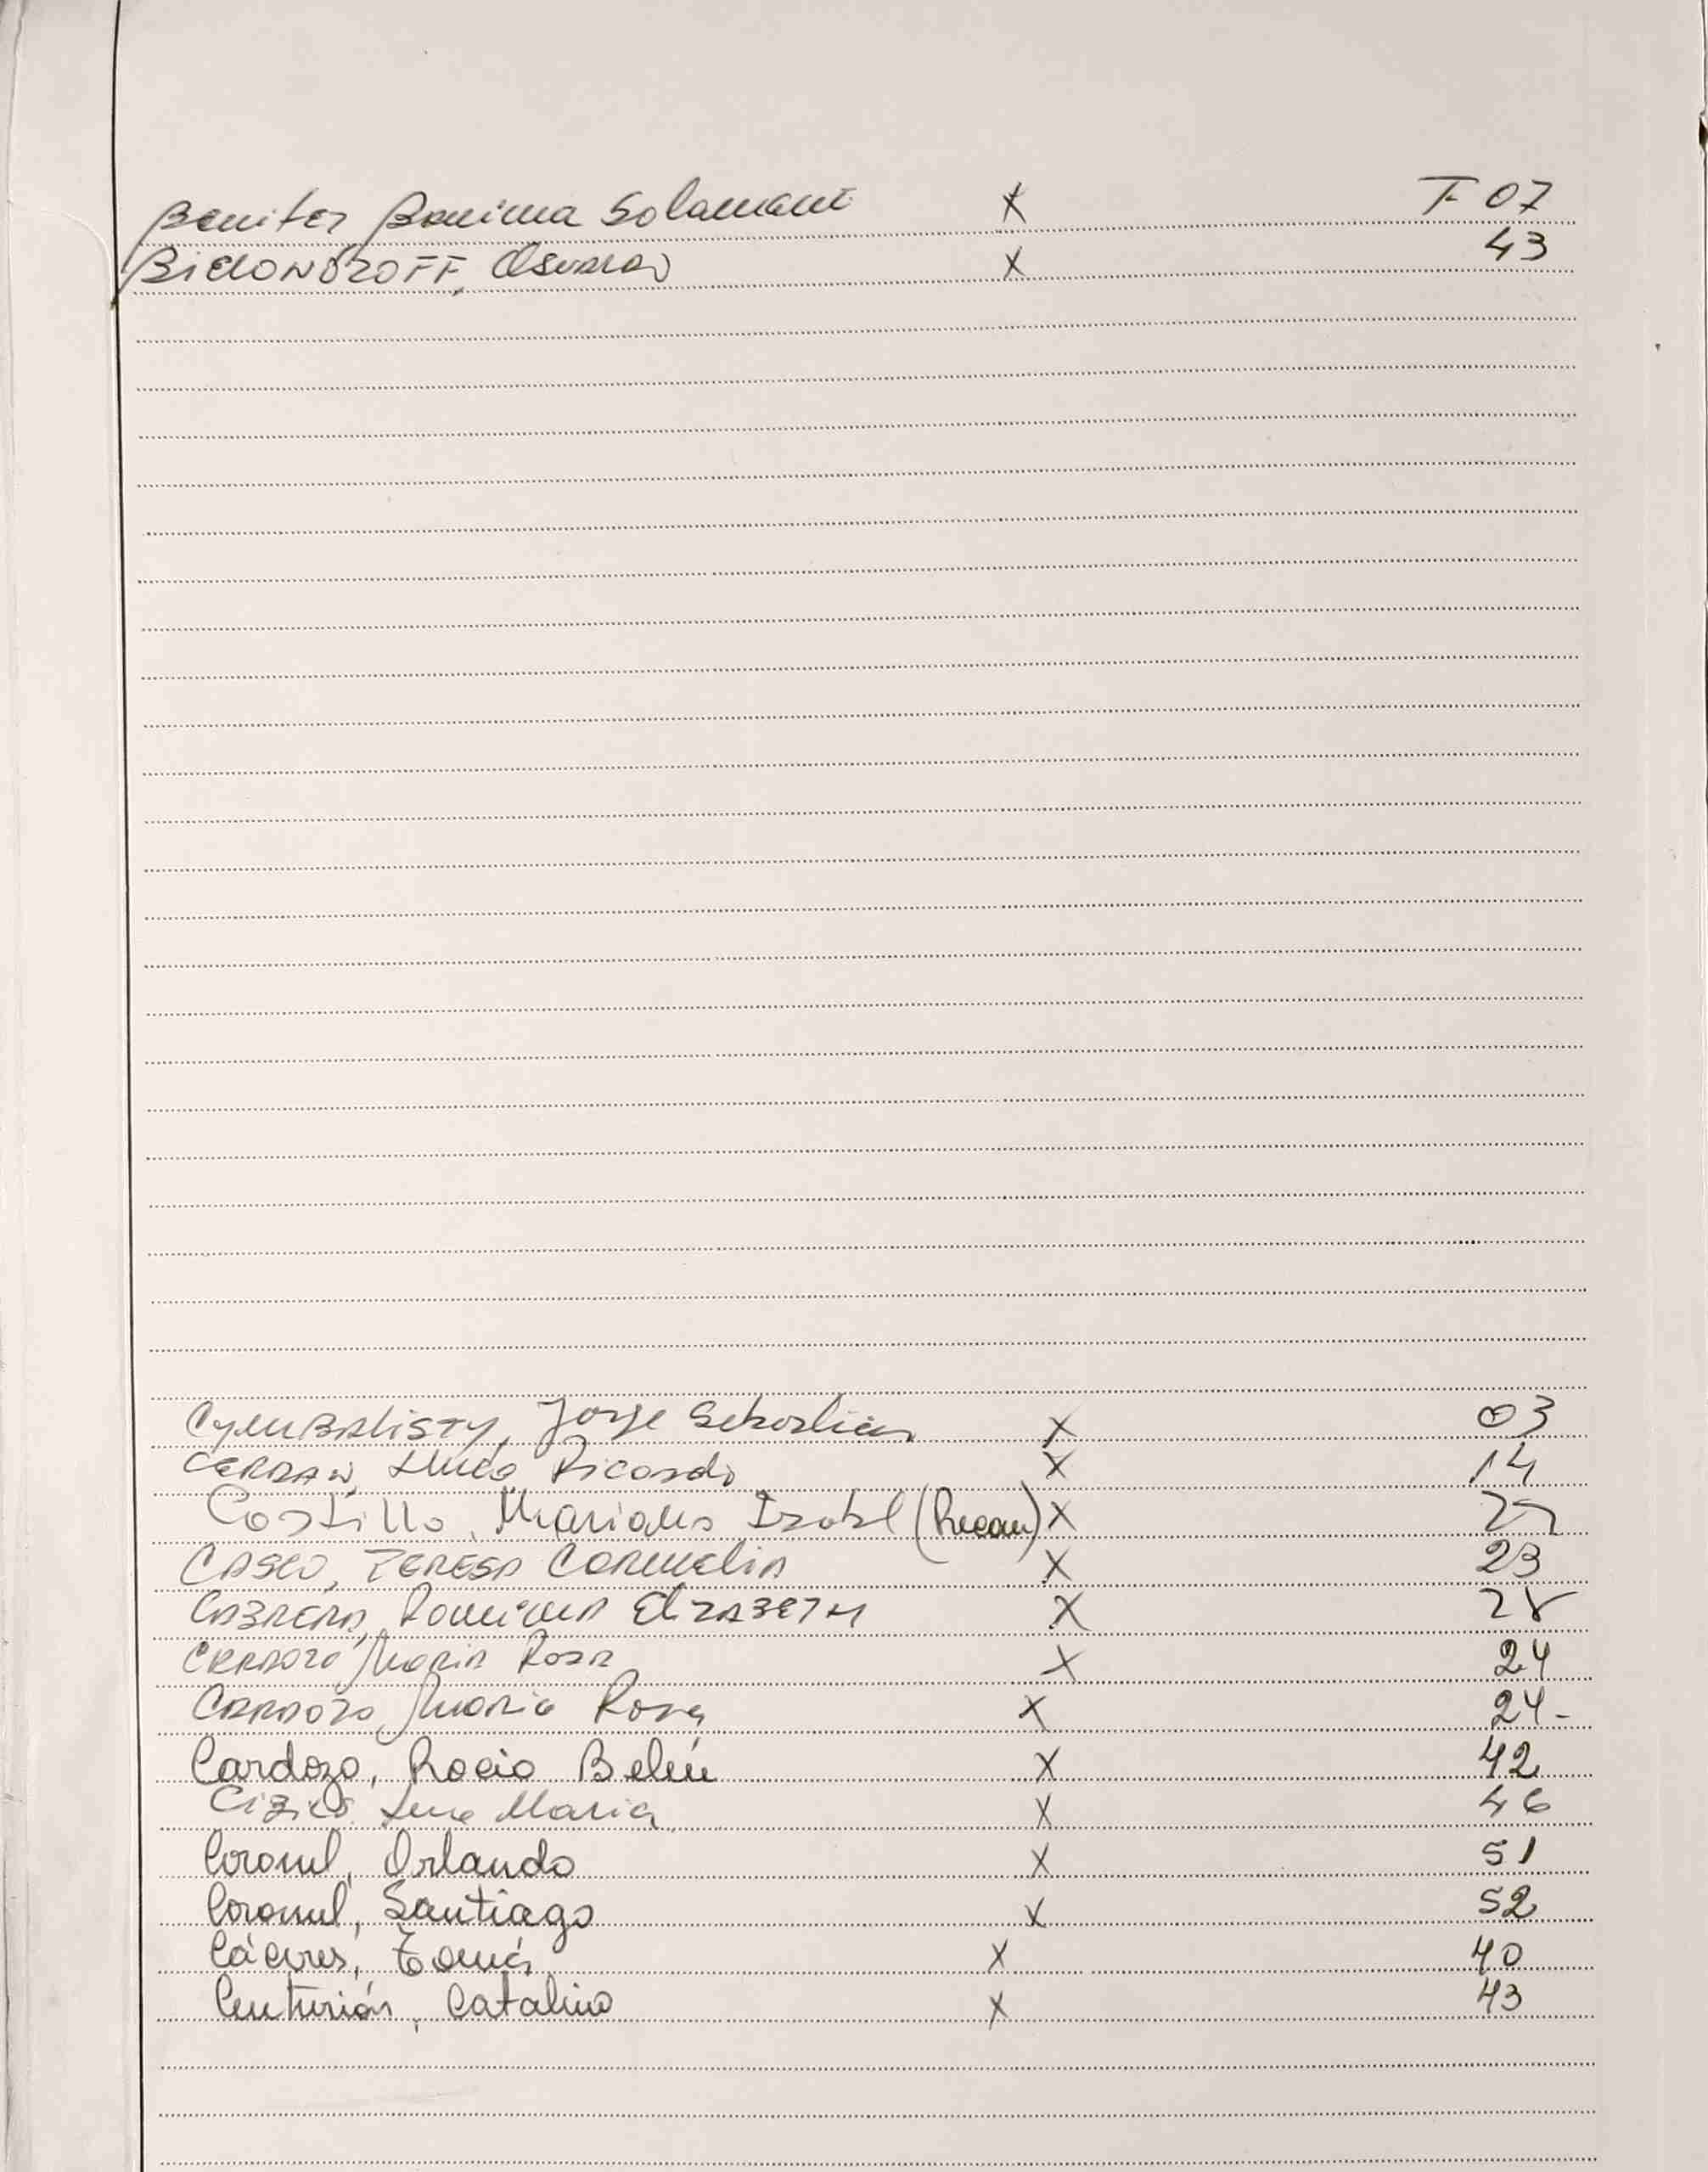 Benitez Bonima Solamani X F 07
BIELONOZOFF, Osvaldo X 43
CYMBALISTY, Jorge Sebastian X 03
CERDAN, Hugo Ricardo X 14
Castillo, Mariana Isabel (Recau) X 22
CASCO, TERESA Cornelia X 23
CABRERA, Romina ELIZABETH X 28
CARDOZO Maria Rosa X 24
CARDOZO Maria Rosa X 24-
Cardozo, Rocio Belén X 42
Maria X 46
Coronel, Orlando X 51
Coronel, Santiago X 52
Cáceres, Tomás X 40
Centurión, Catalino X 43